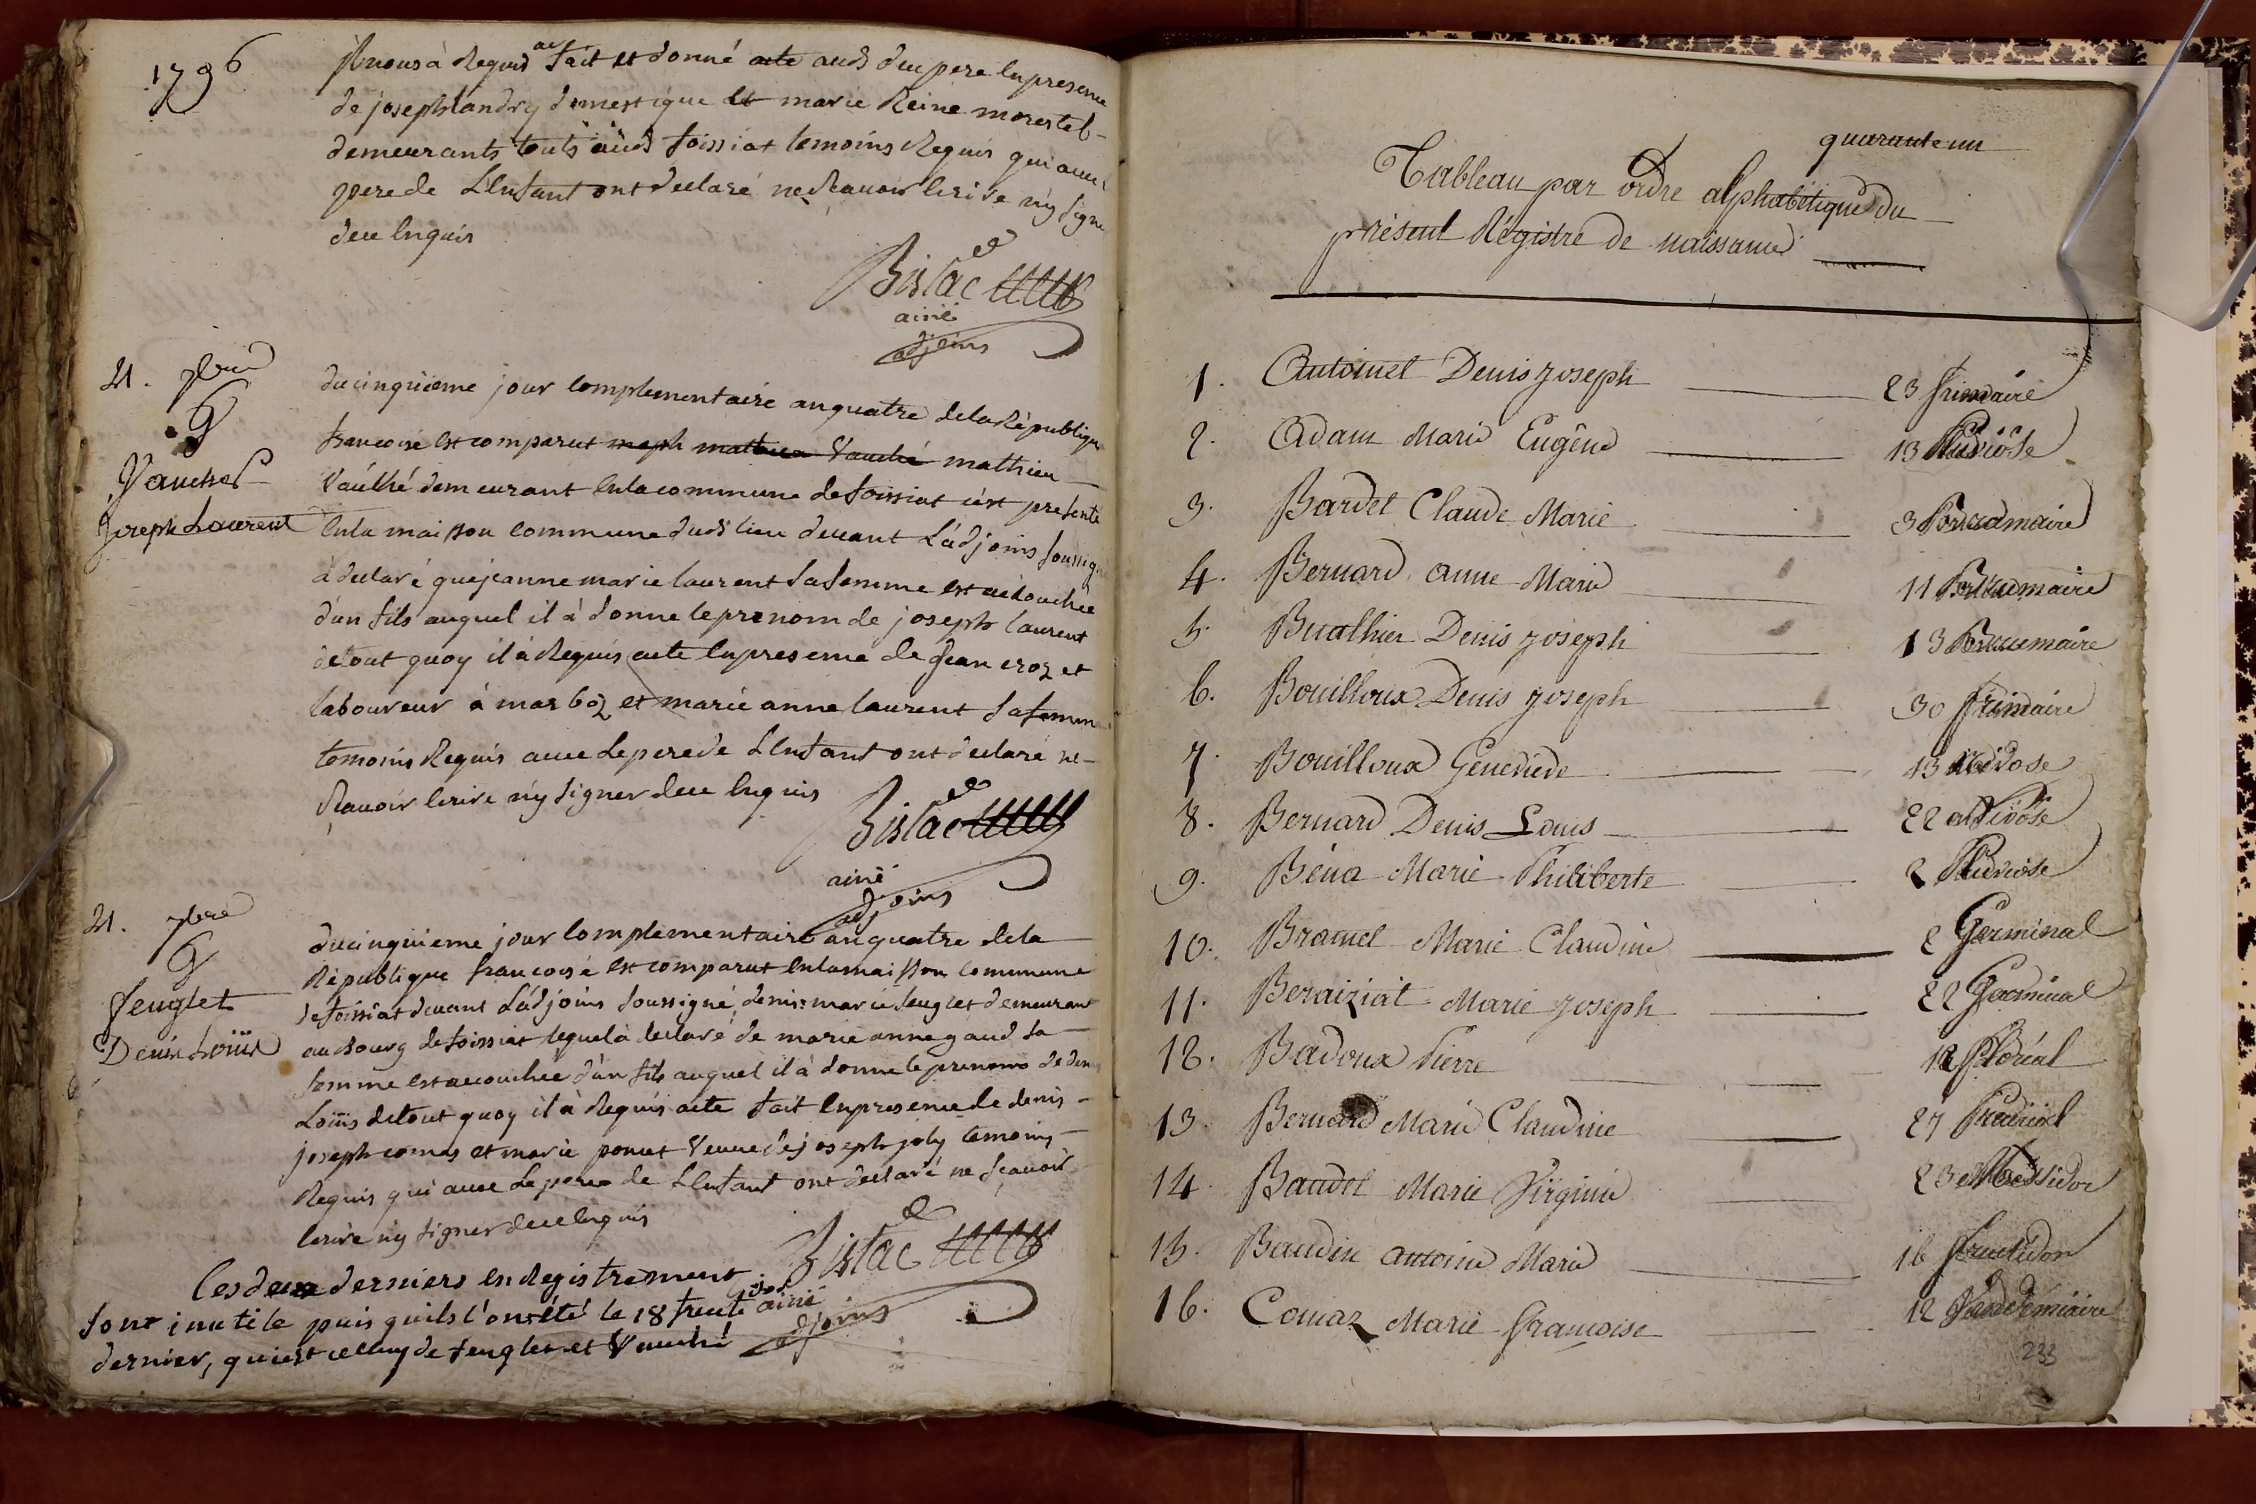 1796
il nous à Requis acte fait et donné acte auds dieu pere En presence
de joseph landry domestique Et marie Reine morestel
demeurants touts auds foissiat temoins Requis qui avec
pere de L'Enfant ont declaré ne scavoir Ecrire n'y signer
dece Enquis
Bislac
ainé
adjoins
21. 7bre
G
Vauché
Joseph Laurent
du cinquieme jour Complementaire an quatre dela Republique
francoise est comparut mathieu Vauché mathieu
Vauché demeurant En la commune de foissiat c'est presenté
En la maison commune duds lieu devant L'adjoins soussigné
à declaré que jeanne marie laurent sa femme est accouchée
d'un fils auquel il à donne le prenom de joseph laurent
de tout quoy il à Requis acte En presence de jean croz et
laboureur à marboz et marie anne laurent sa femme
temoins Requis avec le pere de L'Enfant ont declaré ne
scavoir Ecrire n'y signer dece Enquis
Bislac
ainé
adjoins
21. 7bre
G
feuglet
Denis Loüis
du cinquieme jour Complementaire an quatre dela
Republique francoise est comparut En la maison Commune
de foissiat devant L'adjoins soussigné, denis marie feuglet demeurant
au Bourg de foissiat lequel à declaré de marie anne gaud sa
femme est accouchée d'un fils auquel il à donne le prenoms de denis
Loüis de tout quoy il à Requis acte fait En presence de denis
joseph comas et marie poncet Veuve de joseph joly temoins
Requis qui avec Le pere de L'Enfant ont declaré ne sçavoir
Ecrire n'y signer dece Enquis
Bislac
ainé
adjoins
Ces deux derniers Enregistrement
sont inutile puis quils l'ont été le 18 fructidor
dernier, qui est celluy de feuglet et Vauché
quarante un
Tableau par ordre alphabétique du
présent Régistre de naissance
1. Antoinet Denis Joseph 23 frimaire
2. Adam Marie Eugêne 13 Pluviôse
3. Bardet Claude Marie 3 Brumaire
4. Bernard anne Marie 11 Brumaire
5. Buathier Denis Joseph 13 Brumaire
6. Bouilloux Denis Joseph 30 frimaire
7. Bouilloux Genevieve 13 Nivose
8. Bernard Denis Louis 22 Nivôse
9. Béna Marie Philiberte 2 Pluviôse
10. Bramet Marie Claudine 2 Germinal
11. Beraiziat Marie Joseph 22 Germinal
12. Badoux Pierre 12 Floréal
13. Bernard Marie Claudine 27 Prairial
14. Baudet Marie Virginie 23 Messidor
15. Baudin antoine Marie 16 fructidor
16. Comaz Marie françoise 12 Vendémiaire
233